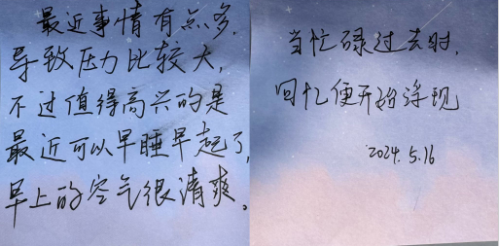 最近事情有点多,
导致压力比较大,
不过值得高兴的是
最近可以早睡早起了,
早上的空气很清爽。
当忙碌过去时,
回忆便开始浮现
2024.5.16